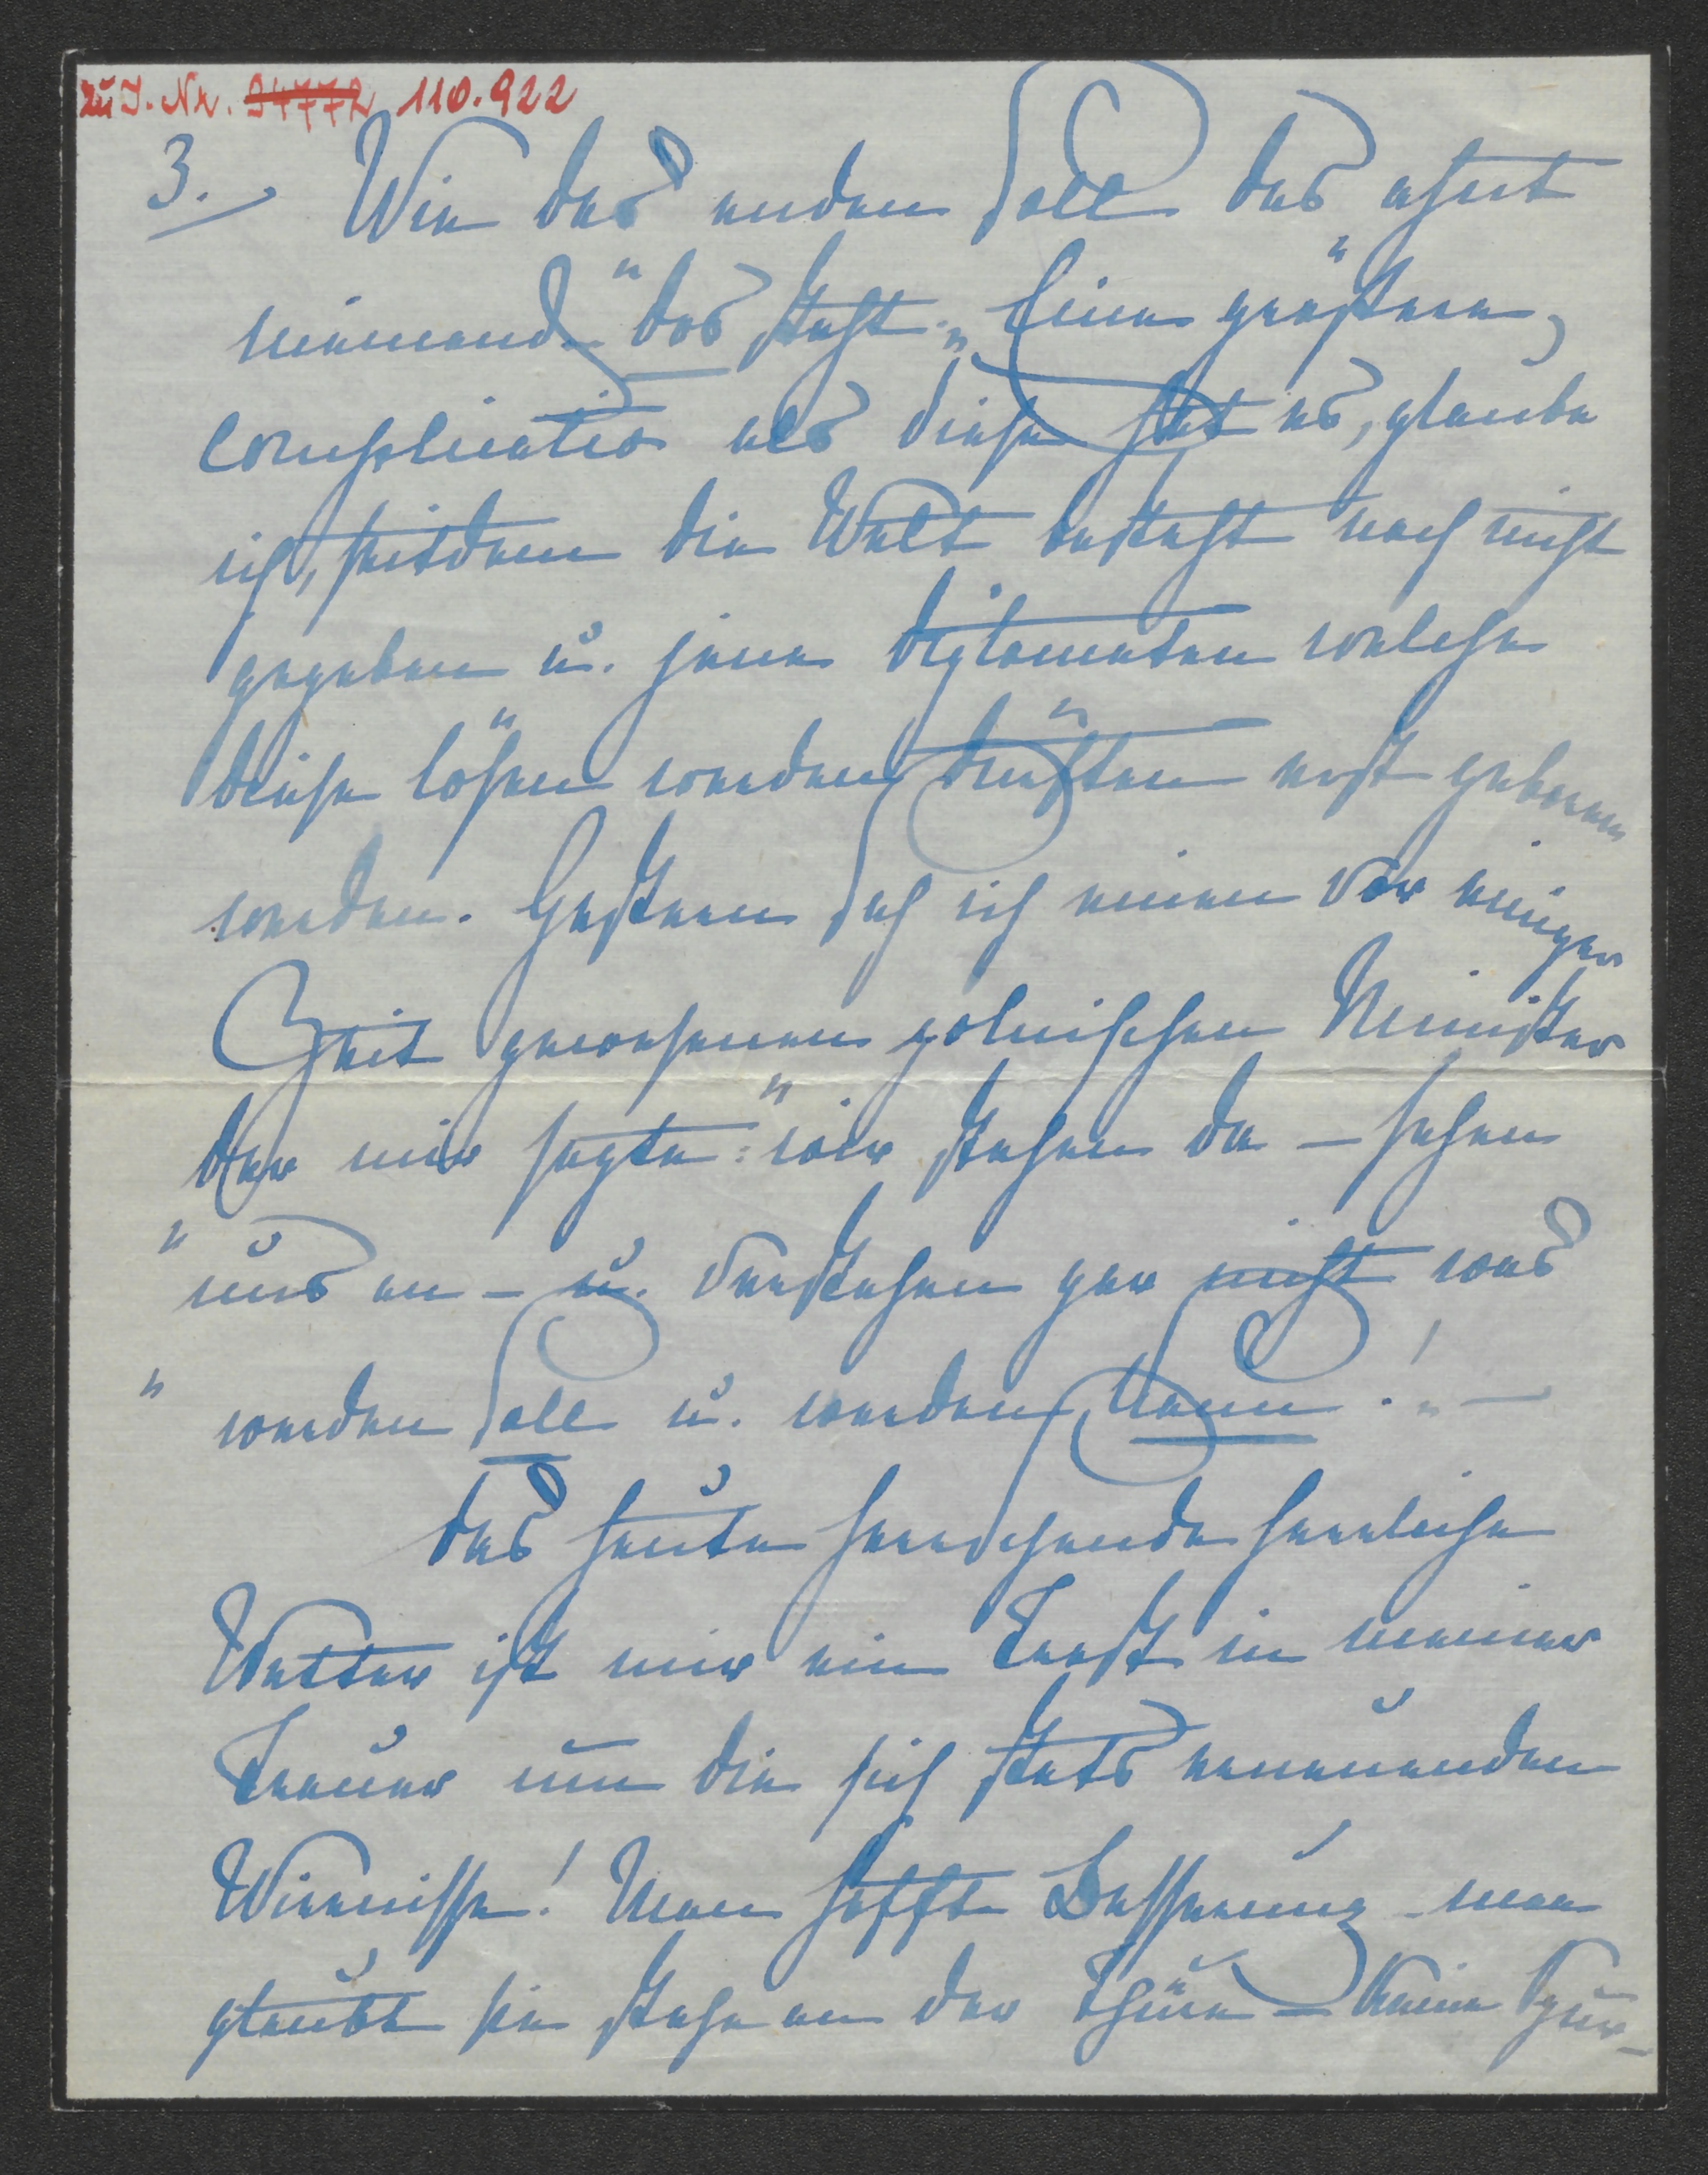 zu I. Nr. 94772 110.922
3. Wie das enden soll das ahnt
niemand "das steht." Eine größere
Complicatio als diese hat es, glaube
ich, seitdem die Welt besteht noch nicht
gegeben u. jene Diplomaten welche
diese lösen werden dürften erst geboren
werden. Gestern sah ich einen vor einiger
Zeit gewesenen polnischen Minister
der mir sagte: "wir stehen da – sehen
" uns an – u. verstehen gar nicht was
" werden soll u. werden kann!" –
Das heute herrschende herrliche
Wetter ist mir ein Trost in meiner
Trauer um die sich stets erneuenden
Wirrnisse! Man hofft Besserung – man
glaubt sie stehe an der Thüre – keine Spur –